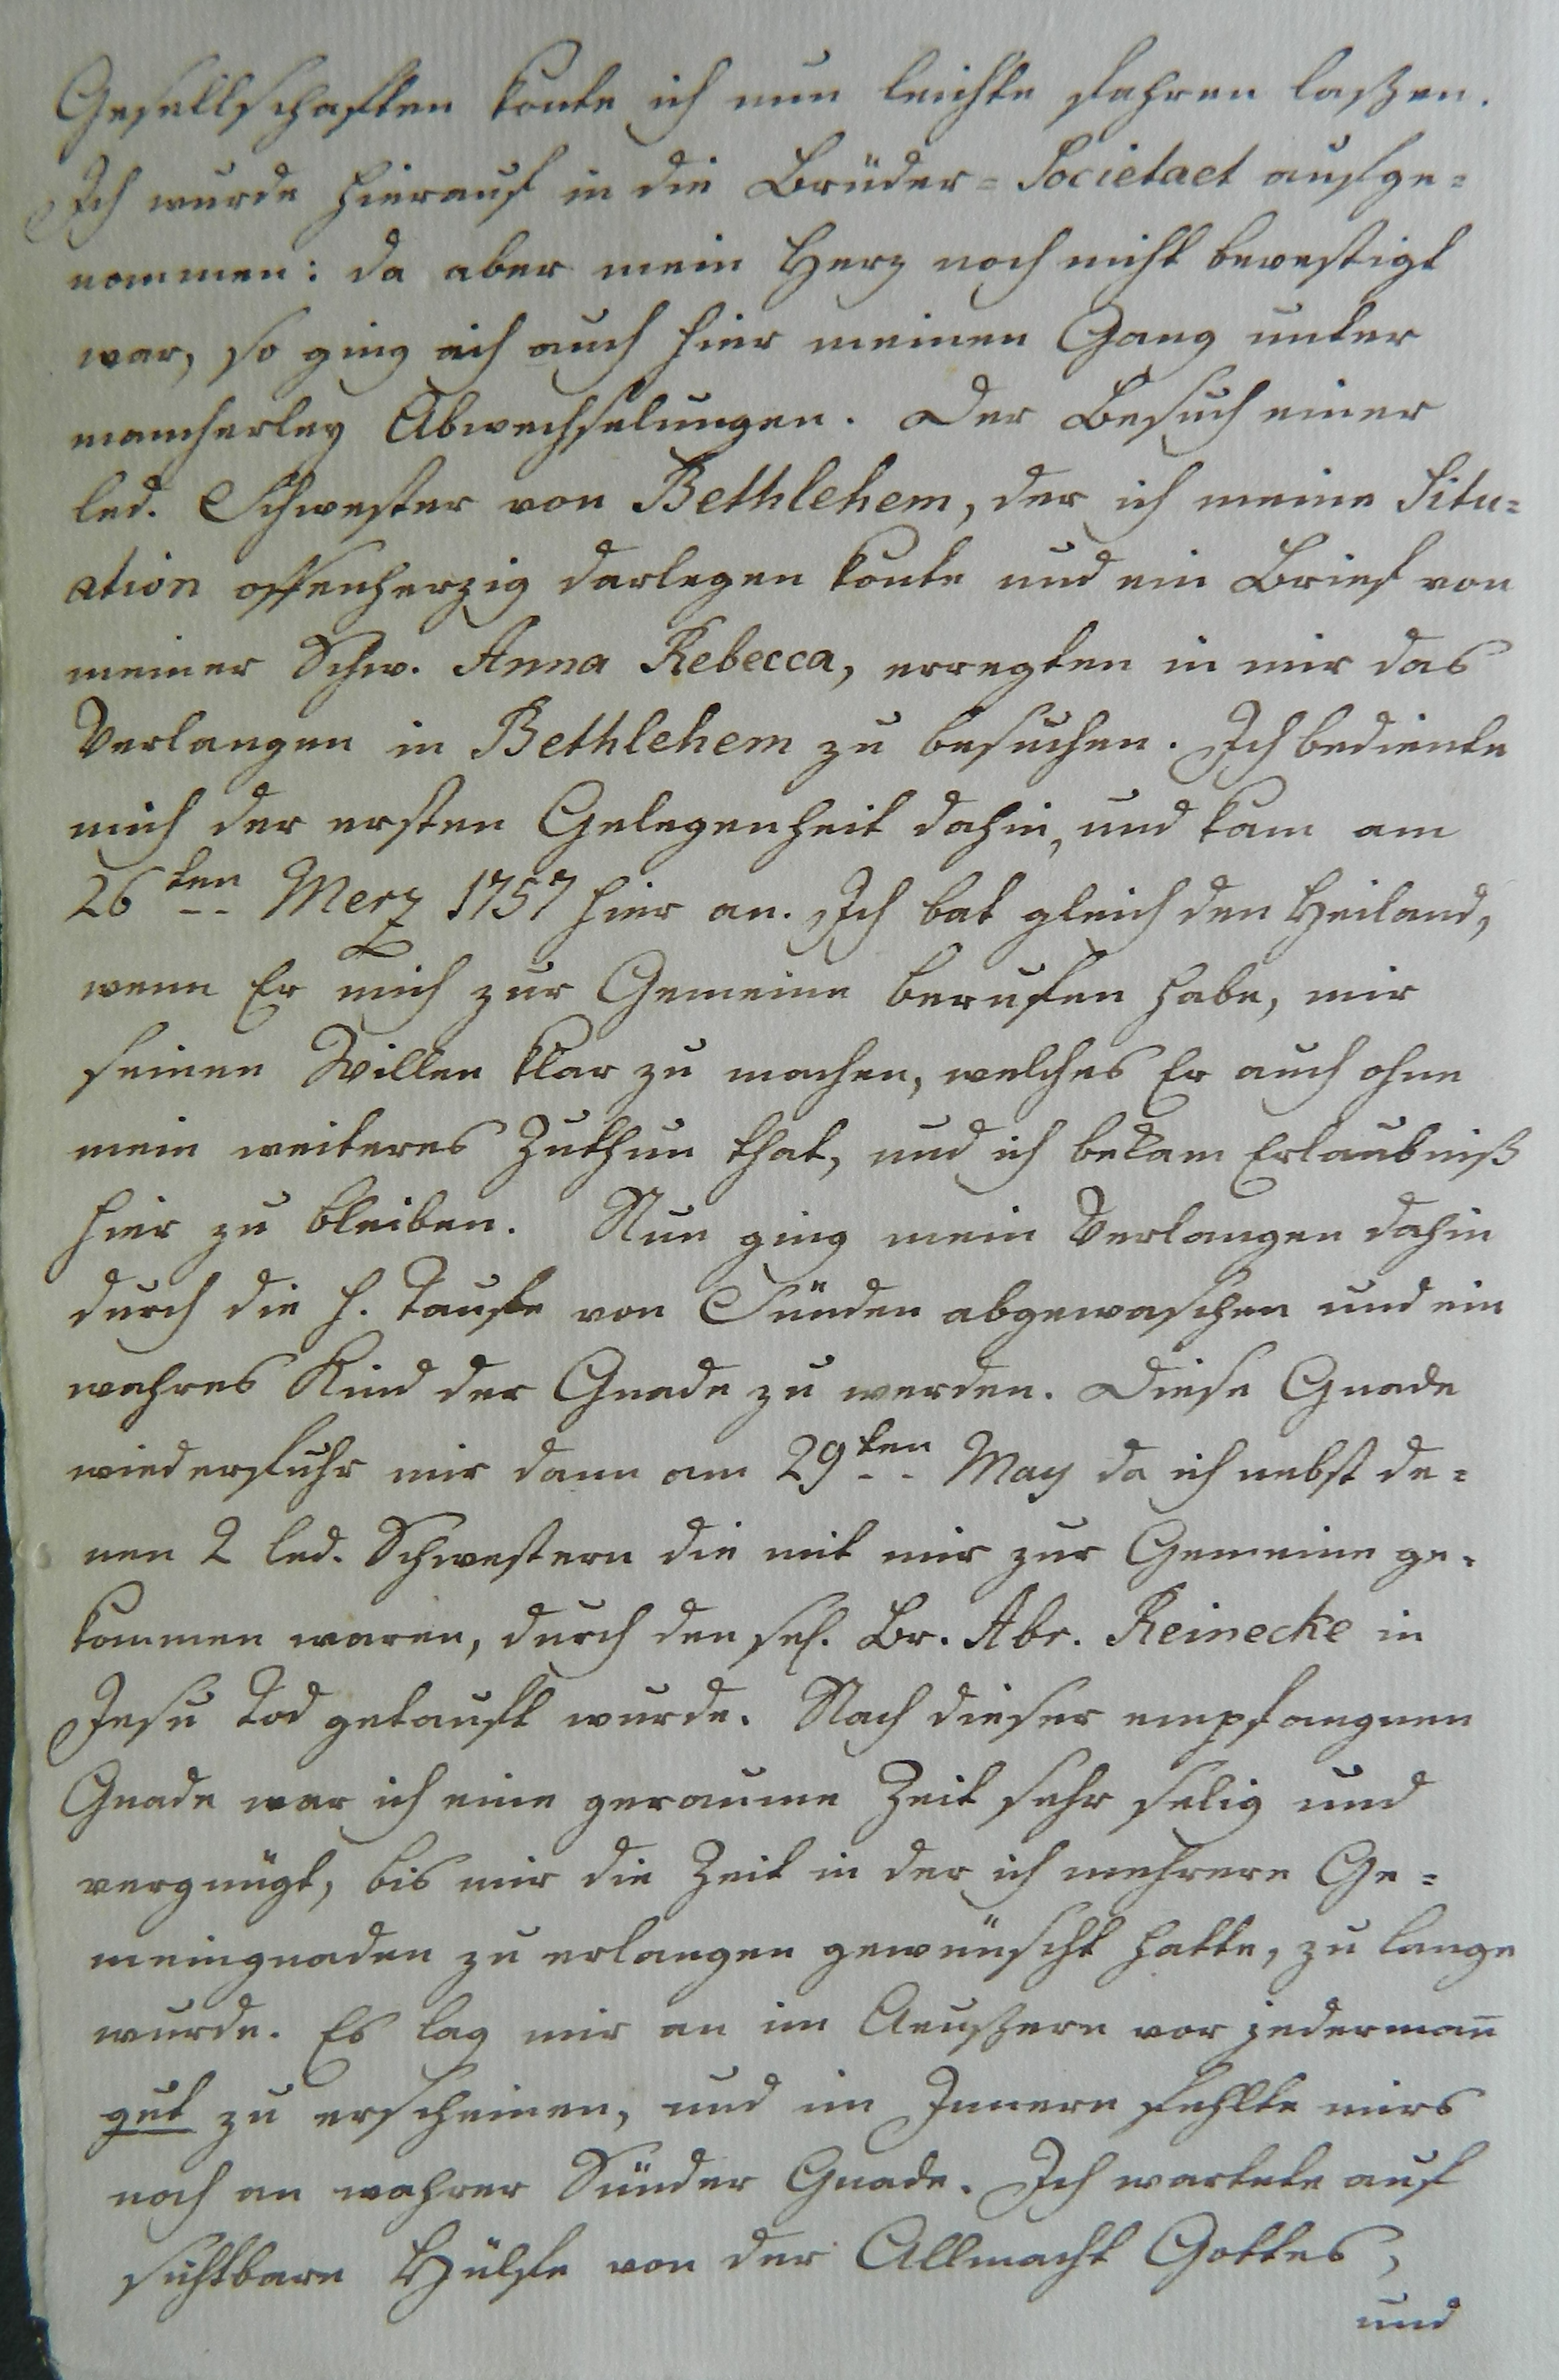 Gesellschaften konte ich nun leichte fahren laßen.
Ich wurde hierauf in die Brüder=Societaet aufge=
nommen: da aber mein Herz noch nicht bevestigt
war, so ging ich auch hier meinen Gang unter
mancherley Abwechselungen. Der Besuch einer
led. Schwester von Bethlehem, der ich meine Situ=
ation offenherzig darlegen konte und ein Brief von
meiner Schw. Anna Rebecca, erregten in mir das
Verlangen in Bethlehem zu besuchen. Ich bediente
mich der ersten Gelegenheit dahin, und kam am
26ten Merz 1757 hier an. Ich bat gleich den Heiland,
wenn Er mich zur Gemeine berufen habe, mir
seinen Willen klar zu machen, welches Er auch ohne
mein weiteres Zuthun that, und ich bekam Erlaubniß
hier zu bleiben. Nun ging mein Verlangen dahin
durch die h. Taufe von Sünden abgewaschen und ein
wahres Kind der Gnade zu werden. Diese Gnade
wiederfuhr mir dann am 29ten May da ich nebst de=
nen 2 led. Schwestern die mit mir zur Gemeine ge=
kommen waren, durch den sel. Br. Abr. Reinecke in
Jesu Tod getauft wurde. Nach dieser empfangnen
Gnade war ich eine geraume Zeit sehr selig und
vergnügt, bis mir die Zeit in der ich mehrere Ge=
meingnaden zu erlangen gewünscht hatte, zu lange
wurde. Es lag mir an im Aeußern vor jederman̅
gut zu erscheinen, und im Innern fehlte mirs
noch an wahrer Sünder Gnade. Ich wartete auf
sichtbare Hülfe von der Allmacht Gottes,
und